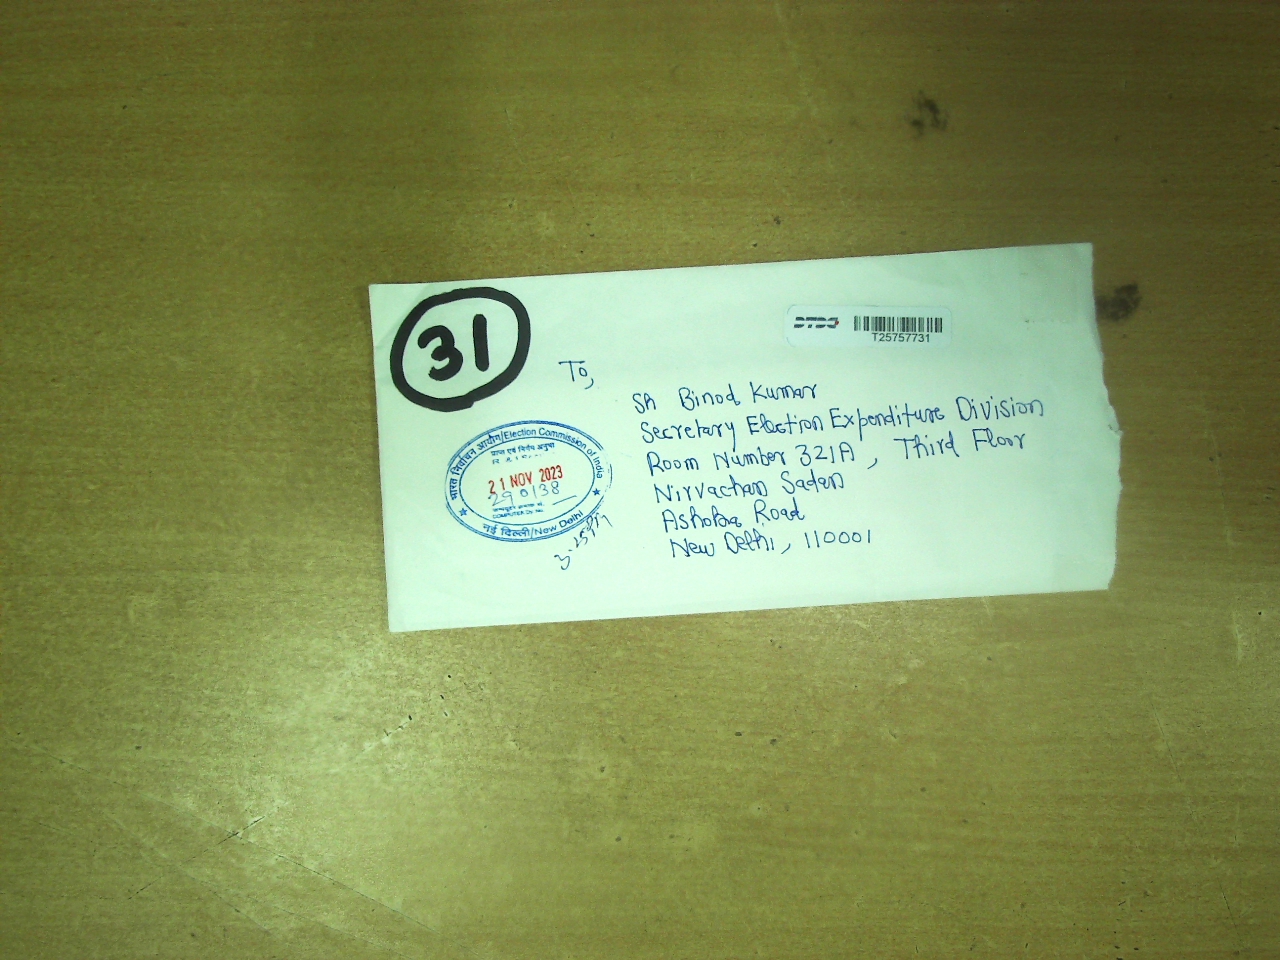 31
DTDC
T25757731
To,
Sh Binod Kumar
Secretary Election Expenditure Division
Room Number 321A, Third Floor
Nirvachan Sadan
Ashoka Road
New Delhi, 110001
भारत निर्वाचन आयोग/Election Commission of India
प्राप्त एवं निर्गम अनुभाग
21 NOV 2023
290138
COMPUTER Dy. No.
नई दिल्ली/New Delhi